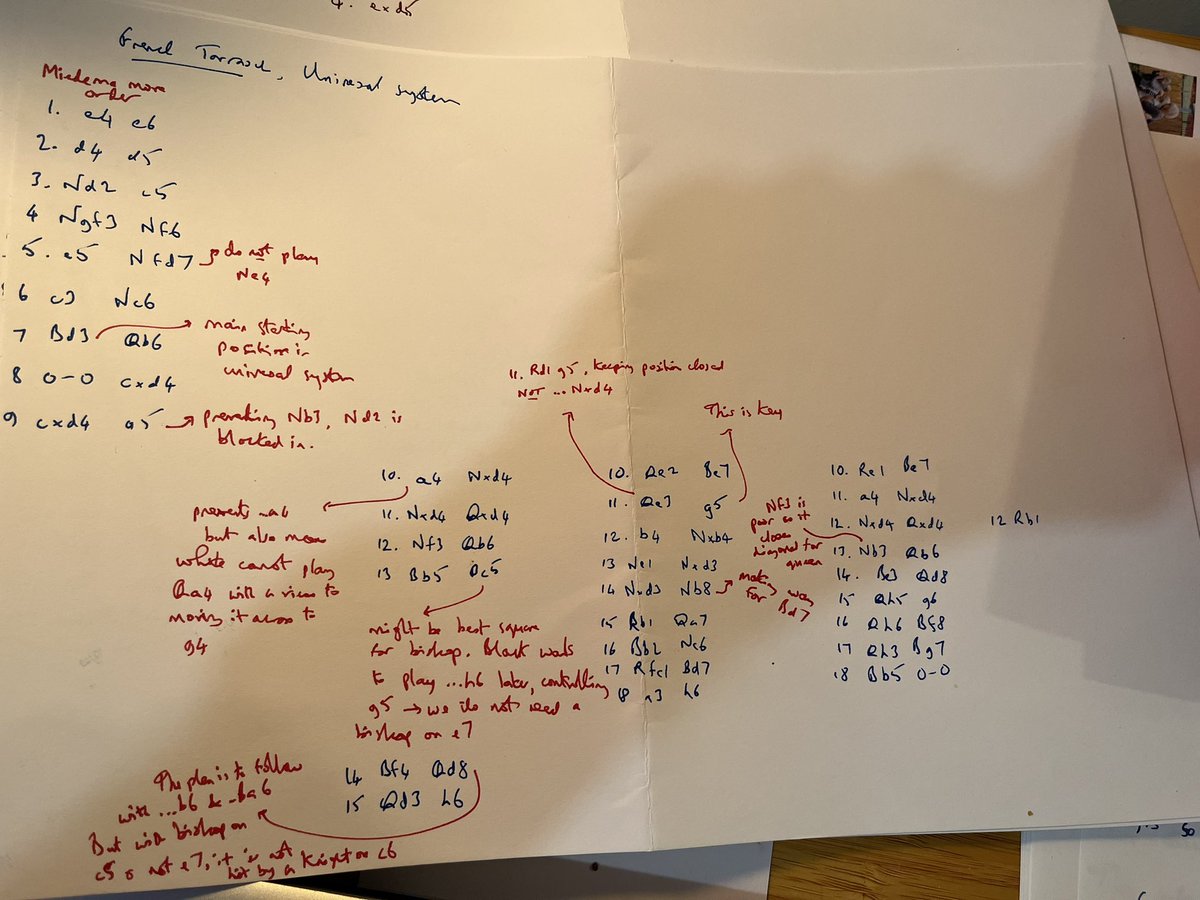 4. exd5
French Tarrasch, Universal system
Miedema move
order
1. e4 e6
2. d4 d5
3. Nd2 c5
4 Ngf3 Nf6
5. e5 Nfd7
do not play
Ne4
6 c3 Nc6
7 Bd3 Qb6
main starting
position in
universal system
8 0-0 cxd4
9 cxd4 a5
preventing Nb3, Nd2 is
blocked in.
10. a4 Nxd4
11. Nxd4 Qxd4
12. Nf3 Qb6
13 Bb5 Bc5
prevents ...a4
but also means
white cannot play
Qa4 with a view to
moving it across to
g4
might be best square
for bishop. Black wants
to play ...h6 later, controlling
g5 → we do not need a
bishop on e7
14 Bf4 Qd8
15 Qd3 h6
The plan is to follow
with ...b6 & ...Ba6
But with bishop on
c5 & not e7, it is not
hit by a Knight on c6
11. Rd1 g5, keeping position closed
NOT ... Nxd4
This is key
10. Qe2 Be7
11. Qe3 g5
12. b4 Nxb4
13 Ne1 Nxd3
14 Nxd3 Nb8
making way
for Bd7
15 Rb1 Qa7
16 Bb2 Nc6
17 Rfc1 Bd7
18 a3 h6
10. Re1 Be7
11. a4 Nxd4
12. Nxd4 Qxd4
12 Rb1
Nf3 is
poor as it
closes
diagonal for
queen
13. Nb3 Qb6
14. Be3 Qd8
15 Qh5 g6
16 Qh6 Bf8
17 Qh3 Bg7
18 Bb5 0-0